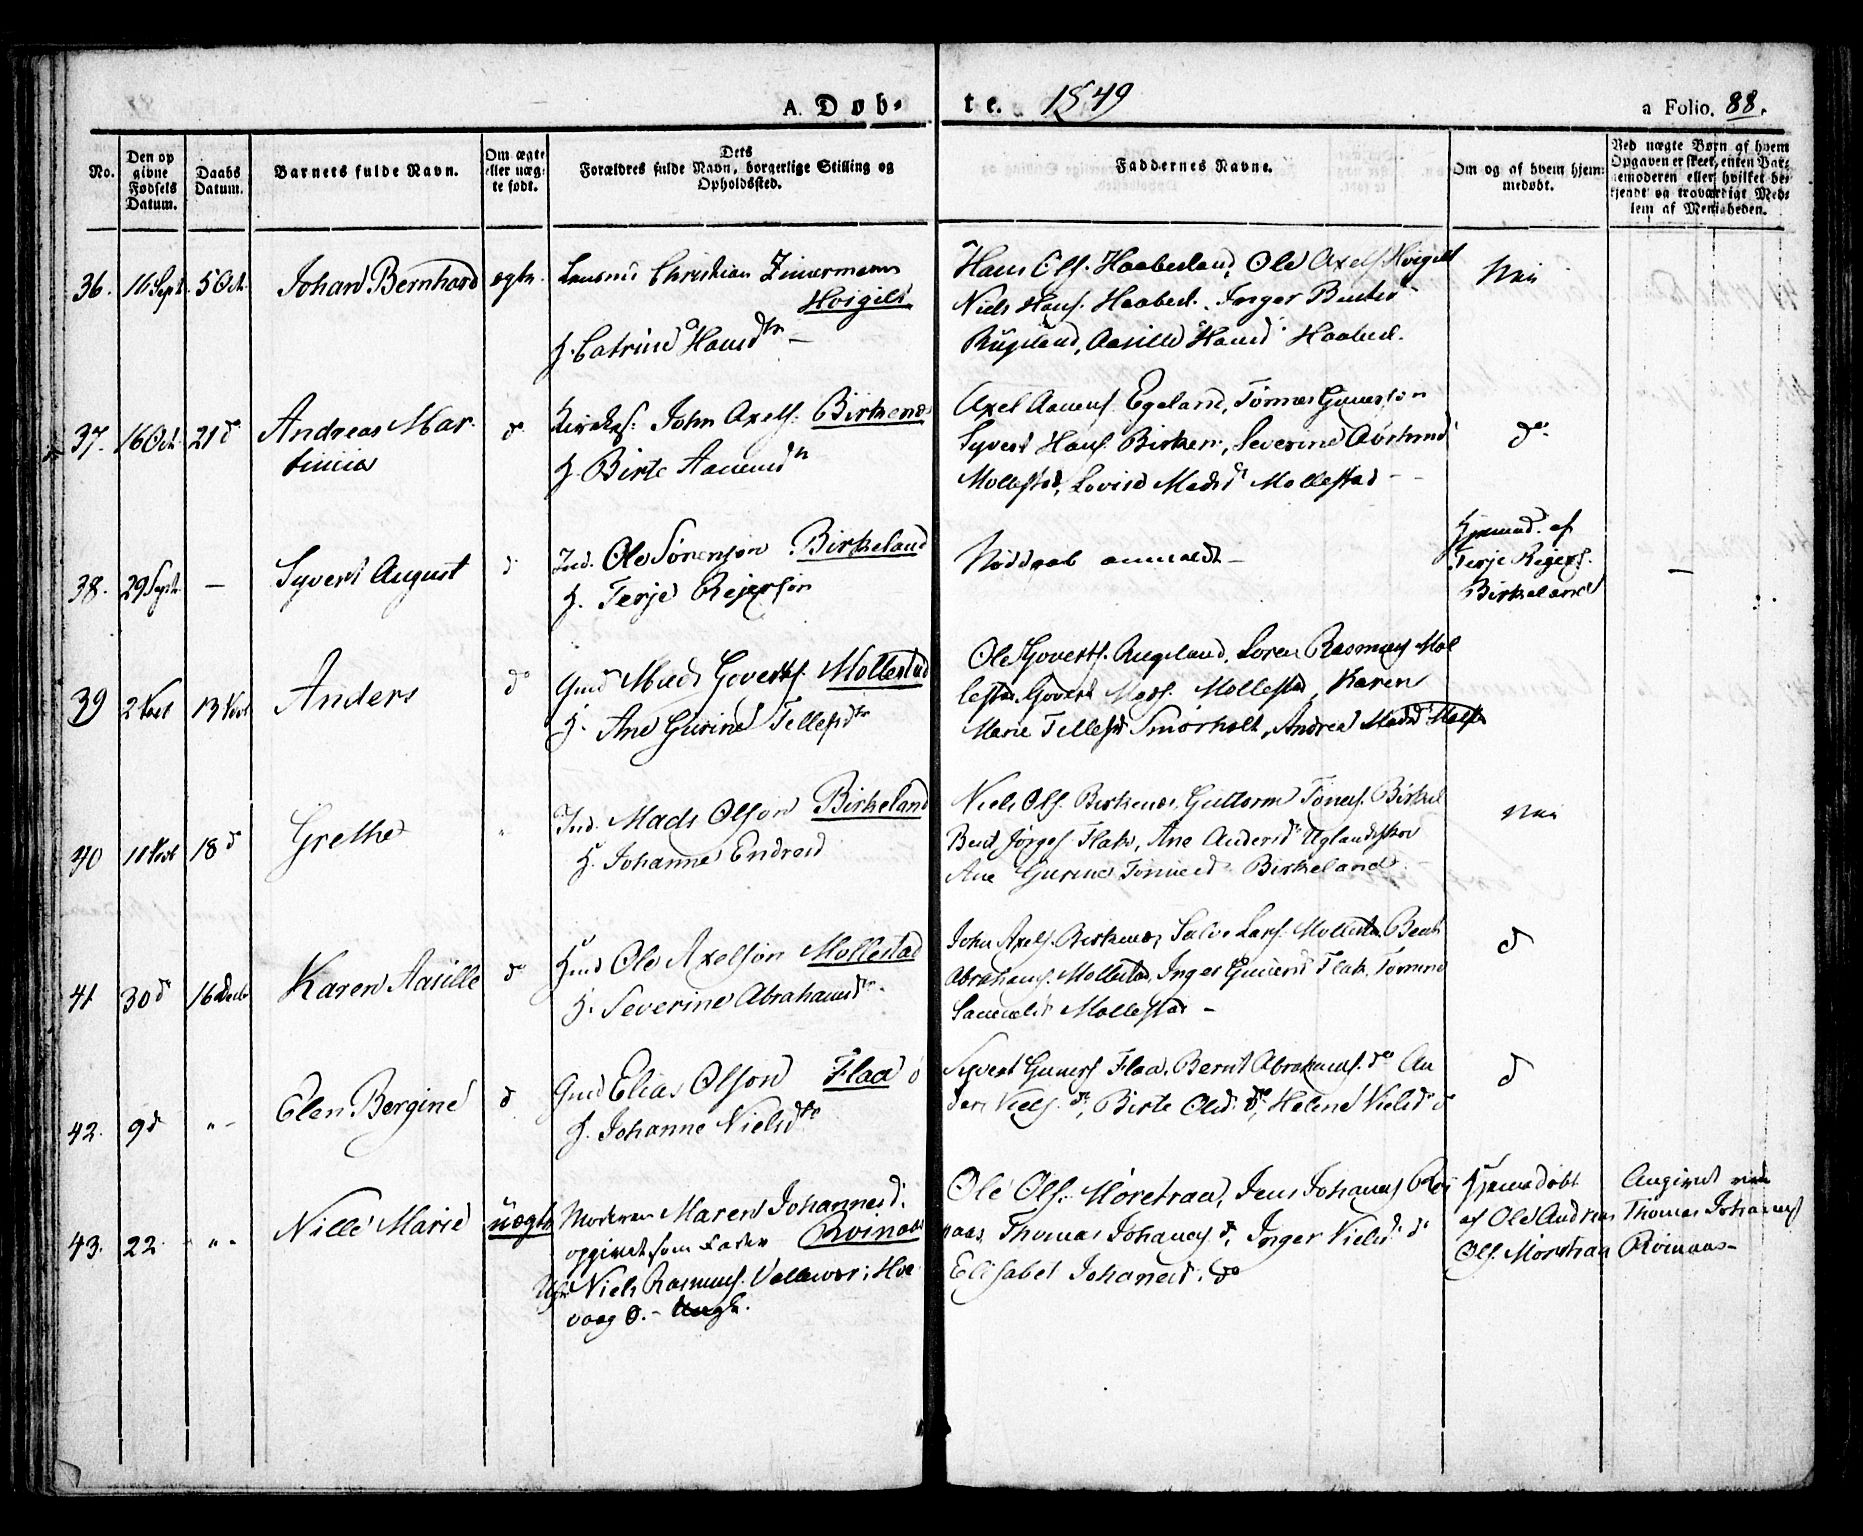 A. Døb- te. 1849
a Folio. 88.
No.
Den op givne Fødsels Datum.
Daabs Datum.
Barnets fulde Navn.
Om ægte eller uæg- te født.
Dets Forældres fulde Navn, borgerlige Stilling og Opholdssted.
Faddernes Navne.
Om og af hvem hjem- medøbt.
Ved uægte Børn af hvem Opgaven er skeet, enten Bar- nemoderen eller hvilket be- kjendt og troværdigt Med- lem af Menigheden.
36. 16 Sept. 5 Oct. Johan Bernhard ægte
Christian Zimermann
Hvigild
H. Catrine Hansdtr –
Hans Ols. Haabesland, Ole Axels. Hvigild
Niels Hans. Haabesl. Inger Bentsd
Rugsland, Aasille Hansd. Haabesl.
Nei
37. 16 Oct. 21 d Andreas Mar-
tinius
d
John Axels. Birkenes
H. Birte Aanensd
Axel Aanens. Egeland, Tønnes Gunerson
Syvert Hans. Birken., Severine
Mollestad, Lovise Madsd Mollestad –
do
38. 29 Sept. – Syvert August d
Ind. Ole Sørenson Birkeland
H. Terje Rejerson
Nøddaab anmeldt –
Hjemmed. af
Terje Rejers.
Birkeland
–
39 2 Novb 13 Novb Anders do
Gmd Mads Goverts. Mollestad
H. Ane Gurine Tellefsdtr
Ole Goverts. Rugsland, Soren Rasmus. Mol
lestad. Govert Mads. Mollestad, Karen
Marie Tellefsd Smørholt, Andrea Madsd Mollst
40 11 Novb 18 d Grethe "
Ind. Mads Olson Birkeland
H. Johanne Endresd
Niels Ols. Birkenes, Guttorm Tønes. Birkel
Bent Jørges. Flak, Ane Andersd Uglandskov
Ane Gurine Tønnesd Birkeland –
Nei
41 30 d 16 Decb Karen Aasille do
Hmd Ole Axelson Mollestad
H. Severine Abrahamsd
John Axels. Birkenes, Salve Lars. Mollesta. Bent
Abrahams. Mollestad, Inger Gunersd Flak, Tomine
Samuelsd Mollestad –
d
42. 9 d "– Elen Bergine d
Gmd Elias Olson Flaa
H. Johanne Nielsdtr
Syvert Guners Flaa, Bernt Abrahams. do An
ders Niels. do, Birte Olsd. do, Helene Nielsd d
d
43. 22. "– Nille Marie uægte
Moderen Maren Johannesd.
Roinaas
opgivet som Fader
Niels Rasmus. Vallevær i Hve-
vaag S. –
Ole Ols. Moretraa, Jens Johanes Roi
naas, Thomas Johanes d, Inger Nielsd do
Elisabet Johanesd. do
Hjemedøbt
af Ole Andreas
Ols. Moretraa
Angivet ved
Thomas Johanes
Roinaas –